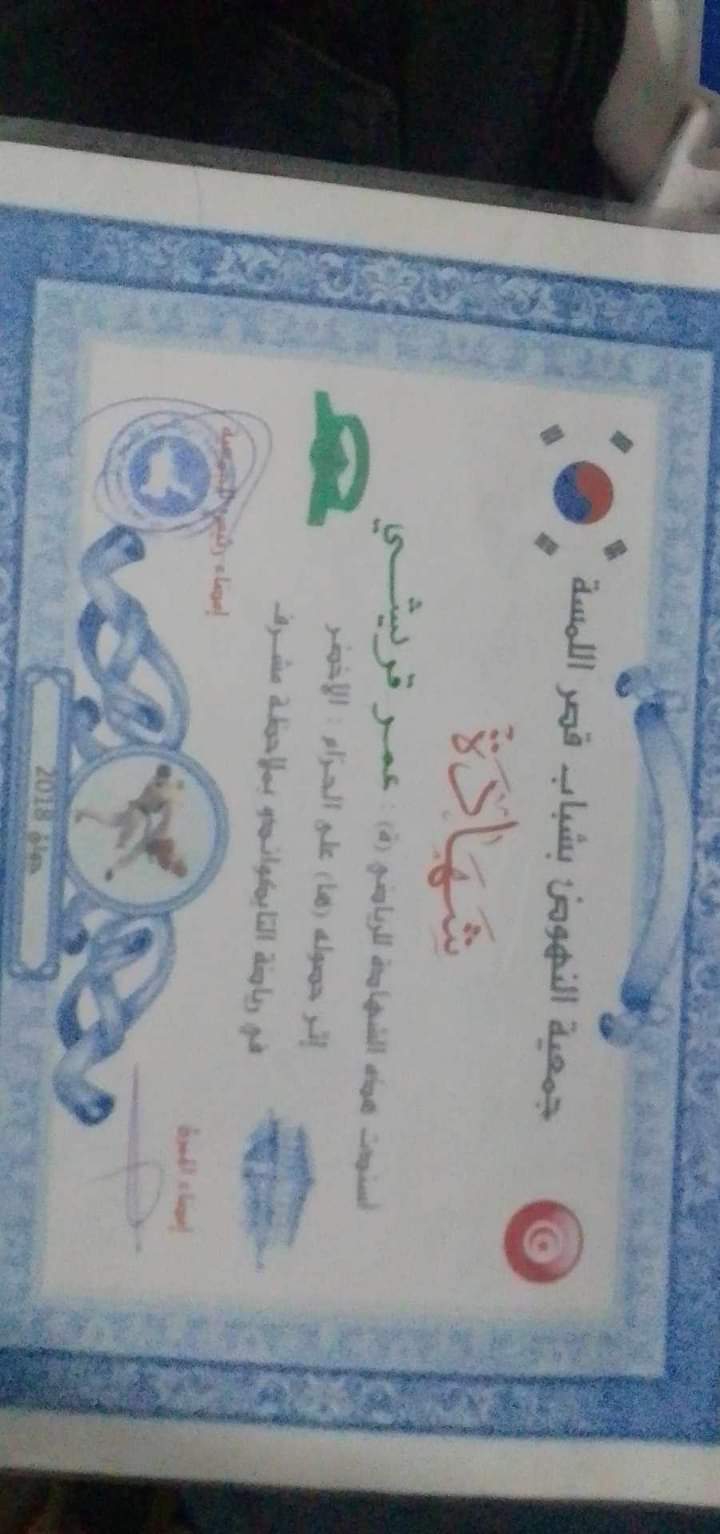 جمعية النهوض بشباب قصر اللمسة
شَهَادَةٌ
اسندت هذه الشهادة للرياضي (ة) : عمر قريشي
إثر حصوله (ها) على الحزام : الاخضر
في رياضة التايكواندو بملاحظة مشرف
إمضاء رئيس الجمعية
إمضاء المدرب
2018